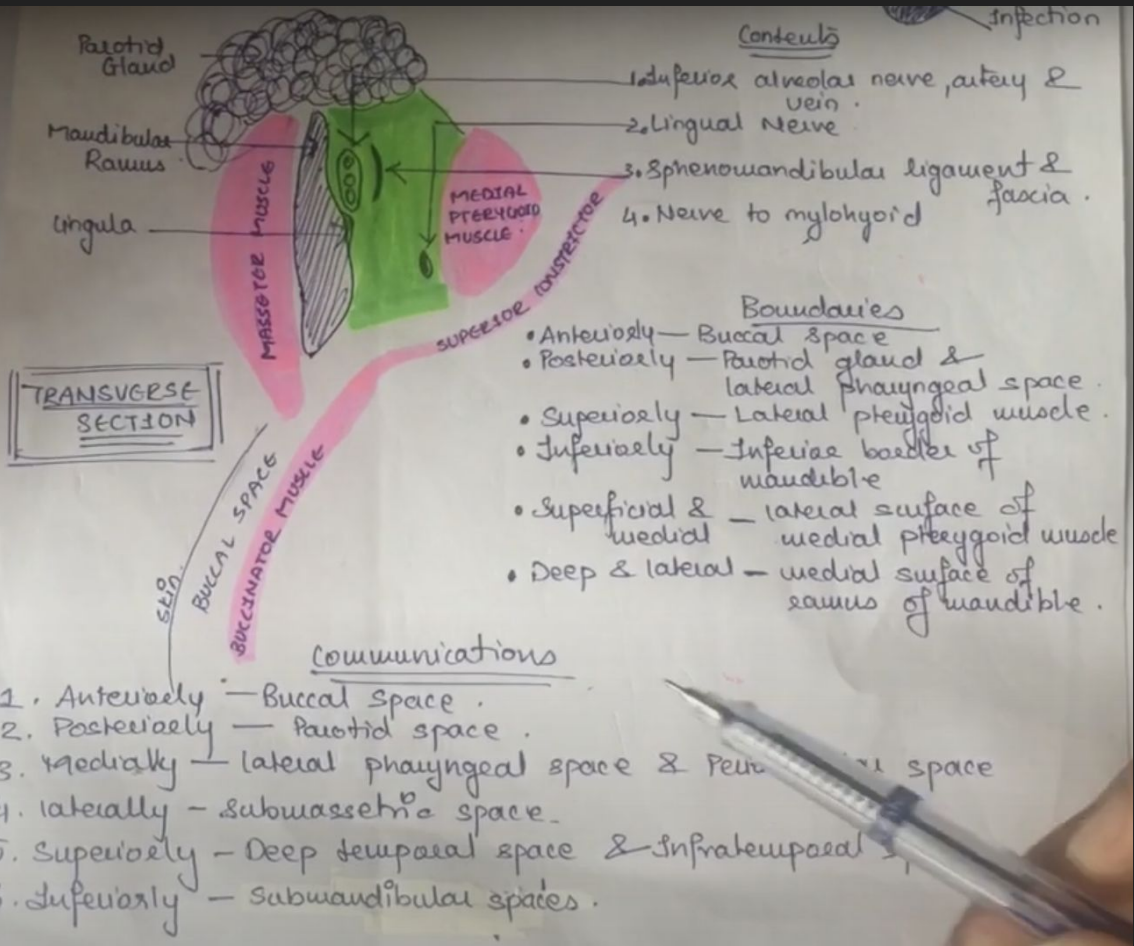 Infection
Parotid
Gland
Mandibular
Ramus
Lingula
MASSETOR MUSCLE
MEDIAL
PTERYGOID
MUSCLE.
SUPERIOR CONSTRICTOR
Contents
1. Inferior alveolar nerve, artery &
vein.
2. Lingual Nerve
3. Sphenomandibular ligament &
fascia.
4. Nerve to mylohyoid
TRANSVERSE
SECTION
Skin
BUCCAL SPACE
BUCCINATOR MUSCLE
Boundaries
• Anteriorly — Buccal space
• Posteriorly — Parotid gland &
lateral pharyngeal space.
• Superiorly — Lateral pterygoid muscle.
• Inferiorly — Inferior border of
mandible
• Superficial & — lateral surface of
medial medial pterygoid muscle
• Deep & lateral — medial surface of
ramus of mandible.
Communications
1. Anteriorly — Buccal Space.
2. Posteriorly — Parotid space.
3. Medially — lateral pharyngeal space & space
4. laterally — Submassetric space.
5. Superiorly — Deep temporal space & Infratemporal
. Inferiorly — Submandibular spaces.